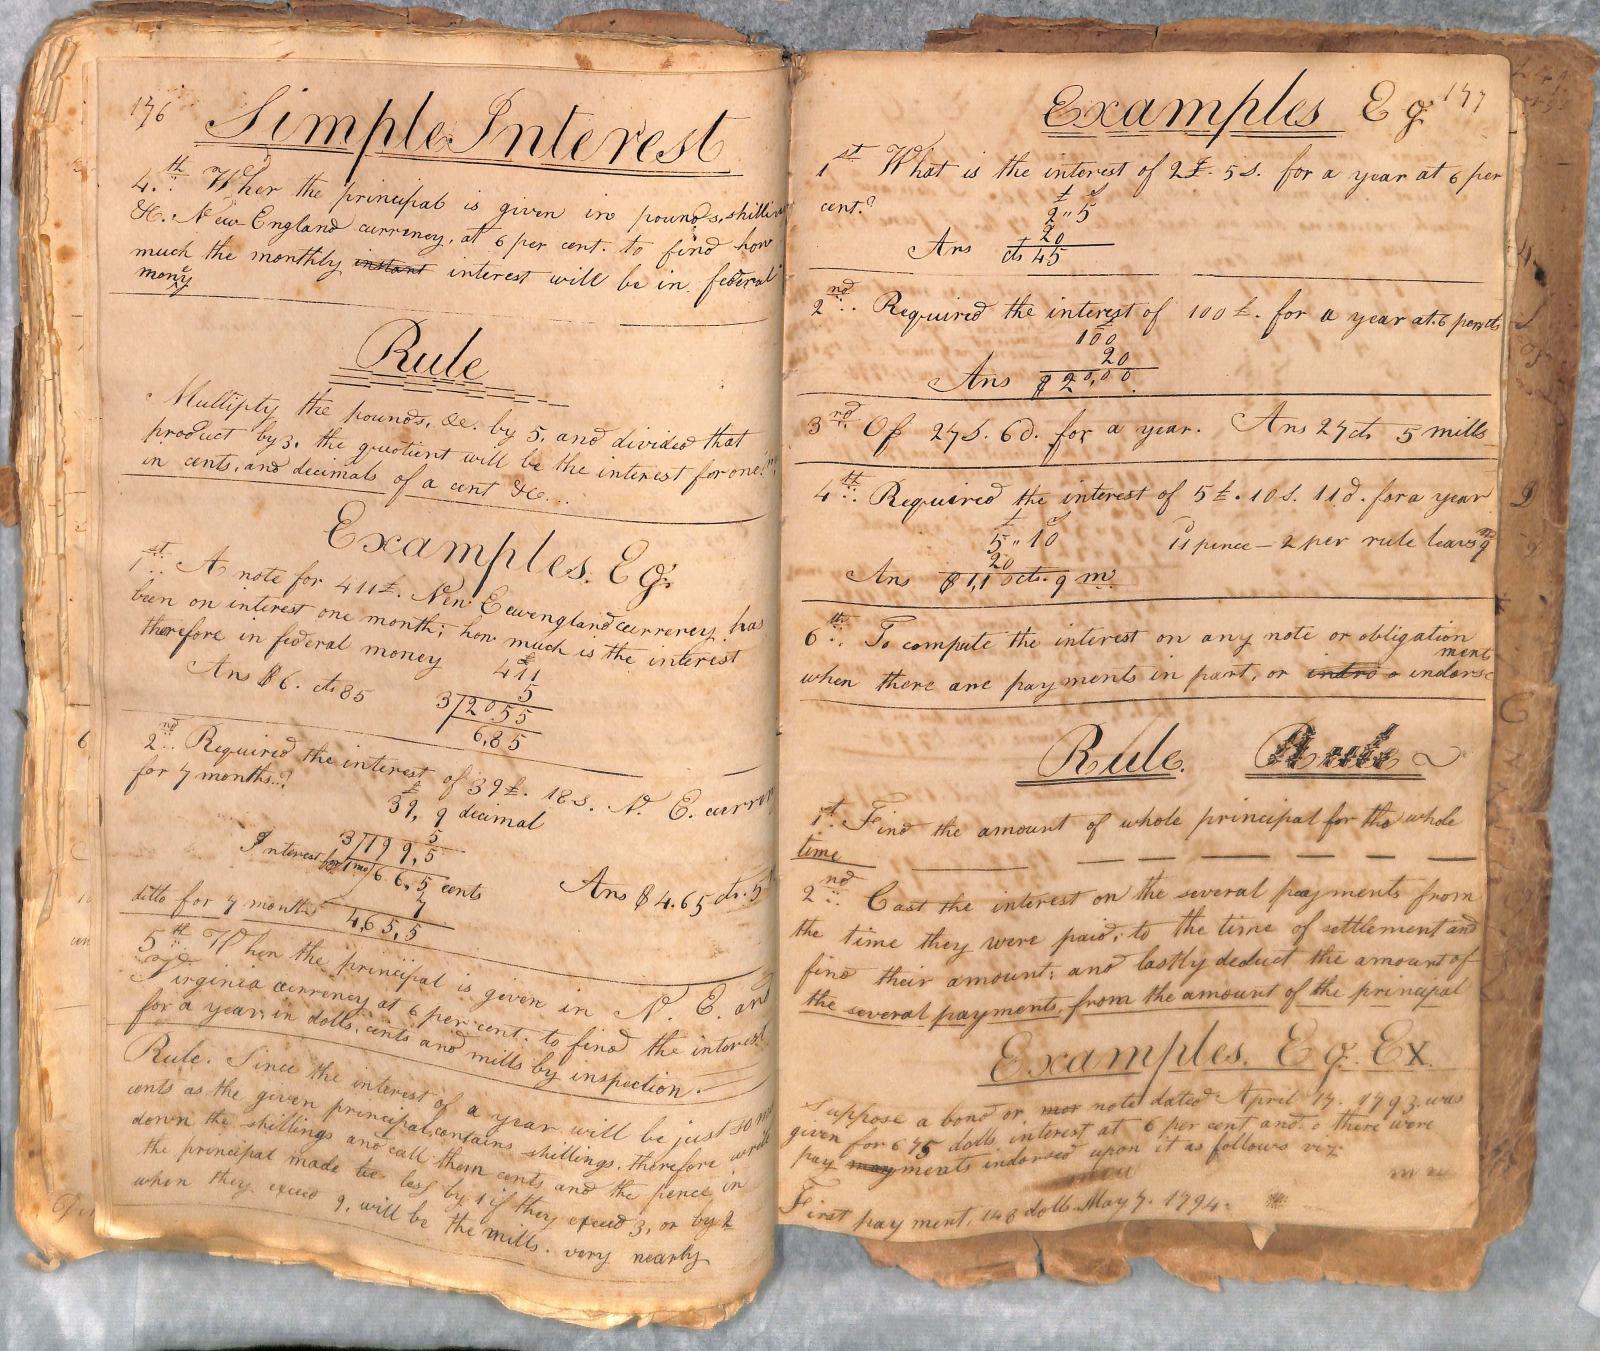 176
Simple Interest
4.th When the principal is given in pounds, shillin
&c. New England currency, at 6 per cent. to find how
much the monthly instant interest will be in federal
mony
Rule
Multipty the pounds, &c. by 5, and divided that
product by 3, the quotient will be the interest for one
in cents, and decimals of a cent &c...
Examples. Eg.
1st A note for 411£. New Eewengland currency has
been on interest one month; how much is the interest
therefore in federal money
£
411
Ans $6. cts 85
5
3/2055
6,85
2nd Required the interest of 39£. 18s. N. E. curren
for 7 months?
£
39, 9 decimal
5
3/199,5
Interest for 1 mo/66,5 cents
7
Ans $4.65 cts. 5
ditto for 7 months
465,5
5th When the principal is given in N. E. and
Virginia currency at 6 per cent. to find the interest
for a year, in dolls, cents and mills by inspection.
Rule. Since the interest of a year will be just so m
cents as the given principal contains shillings, therefore write
down the shillings and call them cents and the pence in
the principal made be less by 1 if they exceed 3, or by 2
when they exceed 9, will be the mills. very nearly
177
Examples Eg
1st What is the interest of 2£. 5s. for a year at 6 per
cent?
£ s
2,, 5
20
Ans cts 45
2nd Required the interest of 100£. for a year at 6 per cts
£
100
20
Ans $20,00
3rd Of 27s. 6d. for a year. Ans 27 cts 5 mills
4th Required the interest of 5£. 10s. 11d. for a year
£ s
5,, 10
11 pence – 2 per rule leavs 9
20
Ans $1,10 cts. 9 m
6th To compute the interest on any note or obligation
when there are payments in part, or indro o indorse
ment
Rule. Rule
1st Find the amount of whole principal for the whole
time
2nd Cast the interest on the several payments from
the time they were paid, to the time of settlement and
find their amount; and lastly deduct the amount of
the several payments, from the amount of the principal
Examples. Eg. Ex.
Suppose a bond or note dated April 17. 1793. was
given for 675 dolls interest at 6 per cent and there were
pay ments indorsed upon it as follows viz
First pay ment, 148 dolls. May 7. 1794.